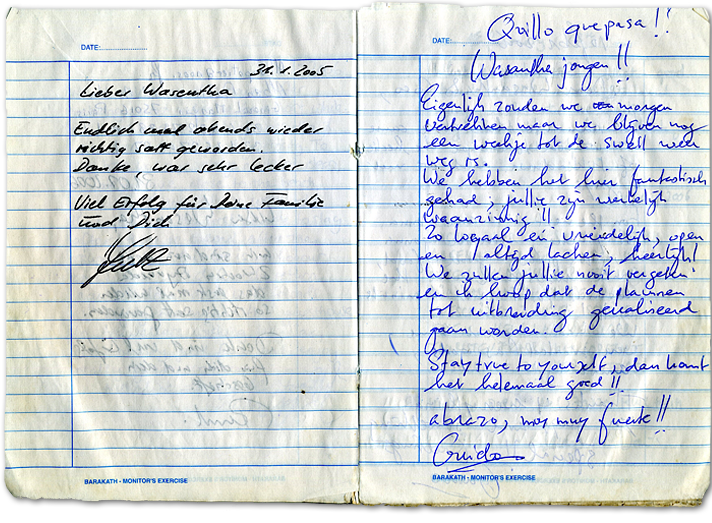 DATE:
31.1.2005
Lieber Wasentha
Endlich mal abends wieder
richtig satt geworden.
Danke, war sehr lecker
Viel Erfolg für Deine Familie
und Dich
BARAKATH - MONITOR'S EXERCISE
Quillo que pasa!!
DATE:
Wasentha jongen!!
Eigenlijk zouden we morgen
vertrekken maar we blijven nog
een weekje tot de swell weer
weg is.
We hebben het hier fantastisch
gehad, jullie zijn werkelijk
waanzinnig!!
Zo loyaal en vriendelijk, open
en altijd lachen, heerlijk!
We zullen jullie nooit vergeten
en ik hoop dat de plannen
tot uitbreiding gerealiseerd
gaan worden.
Stay true to yourself, dan komt
het helemaal goed!!
abrazo, muy muy fuerte!!
Guido
BARAKATH - MONITOR'S EXERCISE